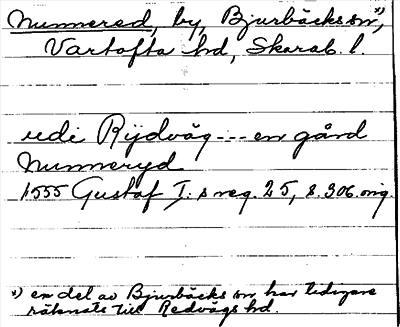 Nunnered, by, Bjurbäcks sn*),
Vartofta hd, Skarab. l.
udi Rijdväg --- en gård
Nunneryd
1555 Gustaf I:s reg. 25, s. 306. orig.
*) en del av Bjurbäcks sn har tidigare
räknats till Redvägs hd.